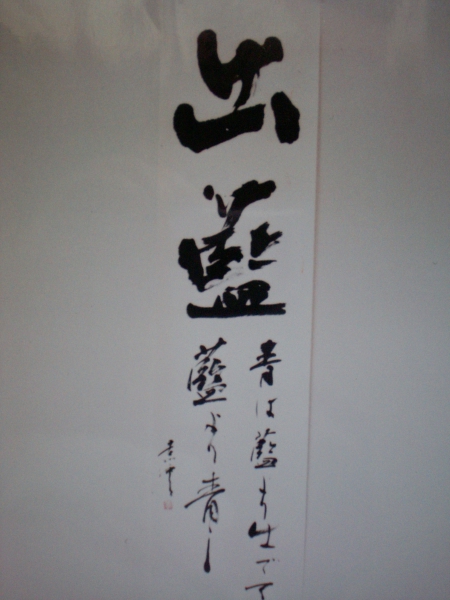 出藍
青は藍より出でて
藍より青し